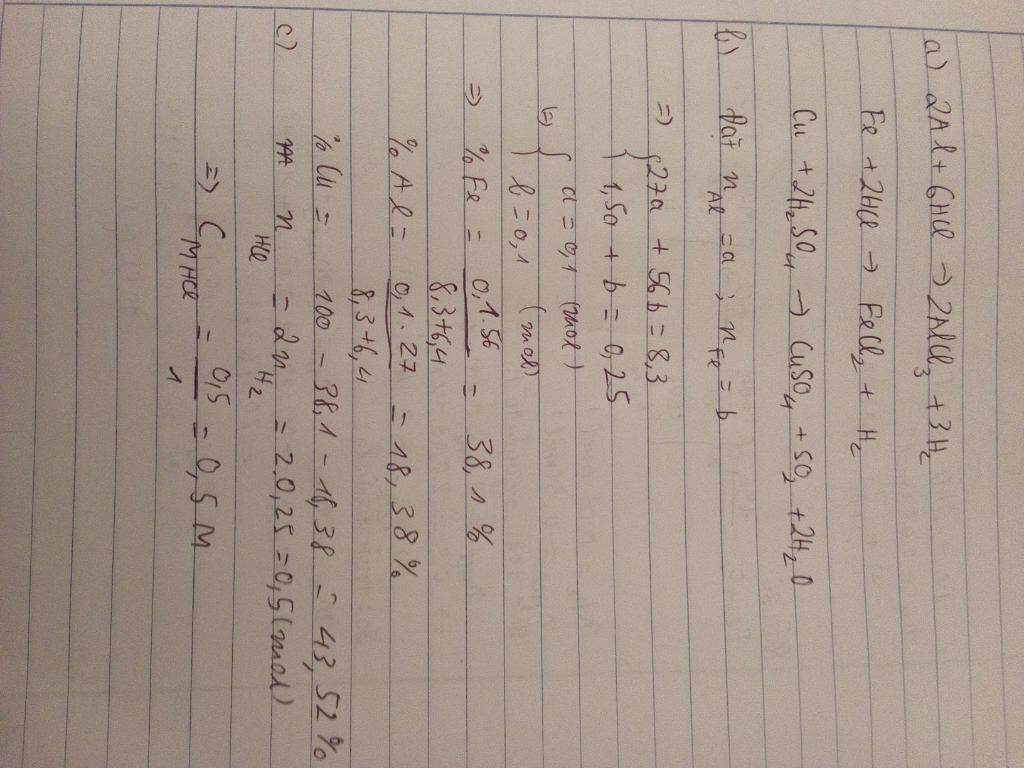 a) 2Al + 6HCl → 2AlCl3 + 3H2
Fe + 2HCl → FeCl2 + H2
Cu + 2H2SO4 → CuSO4 + SO2 + 2H2O
b) Đặt nAl = a ; nFe = b
=> { 27a + 56b = 8,3
1,5a + b = 0,25
(=) { a = 0,1 (mol)
b = 0,1 (mol)
=> % Fe = 0,1.56 / 8,3+6,4 = 38,1 %
% Al = 0,1.27 / 8,3+6,4 = 18,38 %
% Cu = 100 - 38,1 - 18,38 = 43,52 %
c) nHCl = 2nH2 = 2.0,25 = 0,5 (mol)
=> CM HCl = 0,5 / 1 = 0,5 M